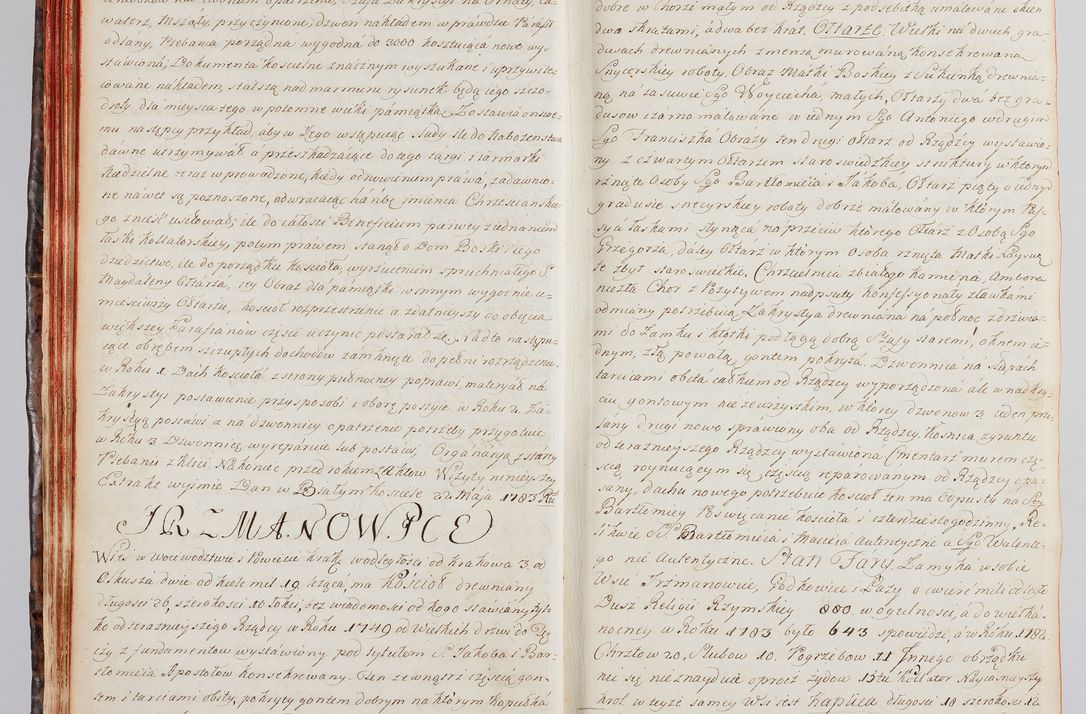 walerz, Mszały przyczynione, dzwon nakładem w prawdzie Parafii
odlany, Plebania porządna wygodna do 3000 kosztuiąca nowo wy-
stawiona; Dokumenta kościelne znacznym wyszukane i uprzywile-
iowane nakładem, stalszą nad marmuru rysunek będą iego szczo-
droty dla mieysca tego w potomne wieki pamiątką. Zostawia onswe-
mu następcy przykład, aby w Jego wstępuiąc ślady ile do nabożenstwa
dawne utrzymywał a przeszkadzaiące do tego targi i iarmarki
Niedzielne teraz wprowadzone, kiedy odnowieniem prawa, zadawnio-
ne nawet są poznoszone, odwracaiąc hańbę imienia Chrześcianskie
go znieść usiłował; ile do całości Beneficium pierwey ziednaniem
łaski kollatorskiey, potym prawem stanął o Dom Boski i iego
dziedzictwo, ile do porządku kościoła, wyrzuceniem spruchniałego S.
Magdaleny Ołtarza, iey Obraz dla pamiątki w innym wygodnie u-
mieściwszy Ołtarzu, kościoł rozprzestrzenie a zdatnieyszy do obięcia
większey Parafianow części uczynić postarał się. Nadto następu-
iące obrębem szczupłych dochodow zamknięte dopełni rozrządzenie.
w Roku 1. Dach kościoła z strony pułnocney poprawi materyał na
Zakrystyi postawienie przysposobi i oborę poszyie, w Roku 2. Za-
krystyą postawi a na dzwonnicy opatrzenie potrzeby przygotuie
w Roku 3. Dzwonnicę wyreparuie lub postawi, Organaryą z starey
Plebanii zklici Nakoniec przed rokiem z Aktow Wizyty ninieyszey
Extrakt wyimie Dan w Białym kościele 22. Maja 1783. Ru
IRZMANOWICE
Wieś w Woiewodztwie i Powiecie krakow. w odległości od krakowa 3, od
Olkusza dwie od kielc mil 10 leżąca, ma Kościoł drewniany
długości 26, szerokości 10 łokci, bez wiadomości od kogo stawiany tyl-
ko od terazniejszego Rządcy w Roku 1749 od Wielkich drzwi do Tę-
czy z fundamentow wystawiony pod tytułem S. Jakoba i Bar-
tłomieia Apostołow konsekrowany. Ten zewnątrz częścią gon-
tem i tarcicami obity, pokryty gontem dobrym na którym kopułka
dobre w Chorze małym od Rządcy z podsebitką umalowane okien
dwa z kratami, a dwa bez krat. Ołtarze, Wielki na dwuch gra-
dusach drewnianych z menzą murowaną konsekrowaną
Snycerskiey roboty, Obraz Matki Boskiey z Sukienką drewnia-
ną na zasuwie Sgo Woyciecha, małych, Ołtarzy dwa bez gra-
dusow czarno malowane w iednym Sgo Antoniego w drugim
Sgo Franciszka Obrazy ten drugi ołtarz od Rządcy wystawio-
ny z czwartym Ołtarzem staroswieckiey struktury w ktorym
rznięte Osoby Sgo Bartłomieia i Jakoba, Ołtarz piąty o iednym
gradusie snycyrskiey roboty dobrze malowany w ktorym Pas-
sya łaskami słynąca na przeciw ktorego Ołtarz z Osobą Sgo
Grzegorza, daley Ołtarz w ktorym osoba rznięta Matki
te zbyt staroswieckie, Chrzcielnica z białego kamienia, Ambona
niezła Chor z Pozytywem nadpsuty konfessyonały z ławkami
odmiany potrzebuią Zakrystya drewniana na pułnoc z drzwia-
mi do zamku i klotki podłogą dobrą Szafy staremi, oknem ie-
dnym, złą powałą, gontem pokryta. Dzwonnica na słupach
tarcicami obita całkiem od Rządcy wyporządzona ale w nadkry-
ciu gontowym nie zewszystkim, w ktorey dzwonow 3 ieden prze-
lany drugi nowo sprawiony oba od Rządcy. Kosnica z gruntu
od terazniejszego Rządcy wystawiona Cmentarz murem czę-
ścią roynuiącym się częścią reparowanym od Rządcy opa-
sany, dachu nowego potrzebuie kościoł ten ma Odpusty na Sty
Bartłomiey Poswięcanie kościoła i czterdziestogodzinny, Re-
likwie S. Bartłomieia i Macieia Autentyczne a Sgo Walente-
go nie Autentyczne. Stan Fary. Zamyka w sobie
Wsie Irzmanowice, Podkowice i Łazy o ćwierć mili odległe
Dusz Religii Rzymskiey 880 w ogulności, a do wielka-
nocney w Roku 1783 było 643 spowiedzi, a w Roku 1782
Chrztow 20. Slubow 10. Pogrzebow 11 Innego obrządku
nie się nieznayduie oprocz żydow 15tu. kollator Nayiasnieyszy
krol. w teyże samey Wsi iest kaplica długości 18 szerokości 12